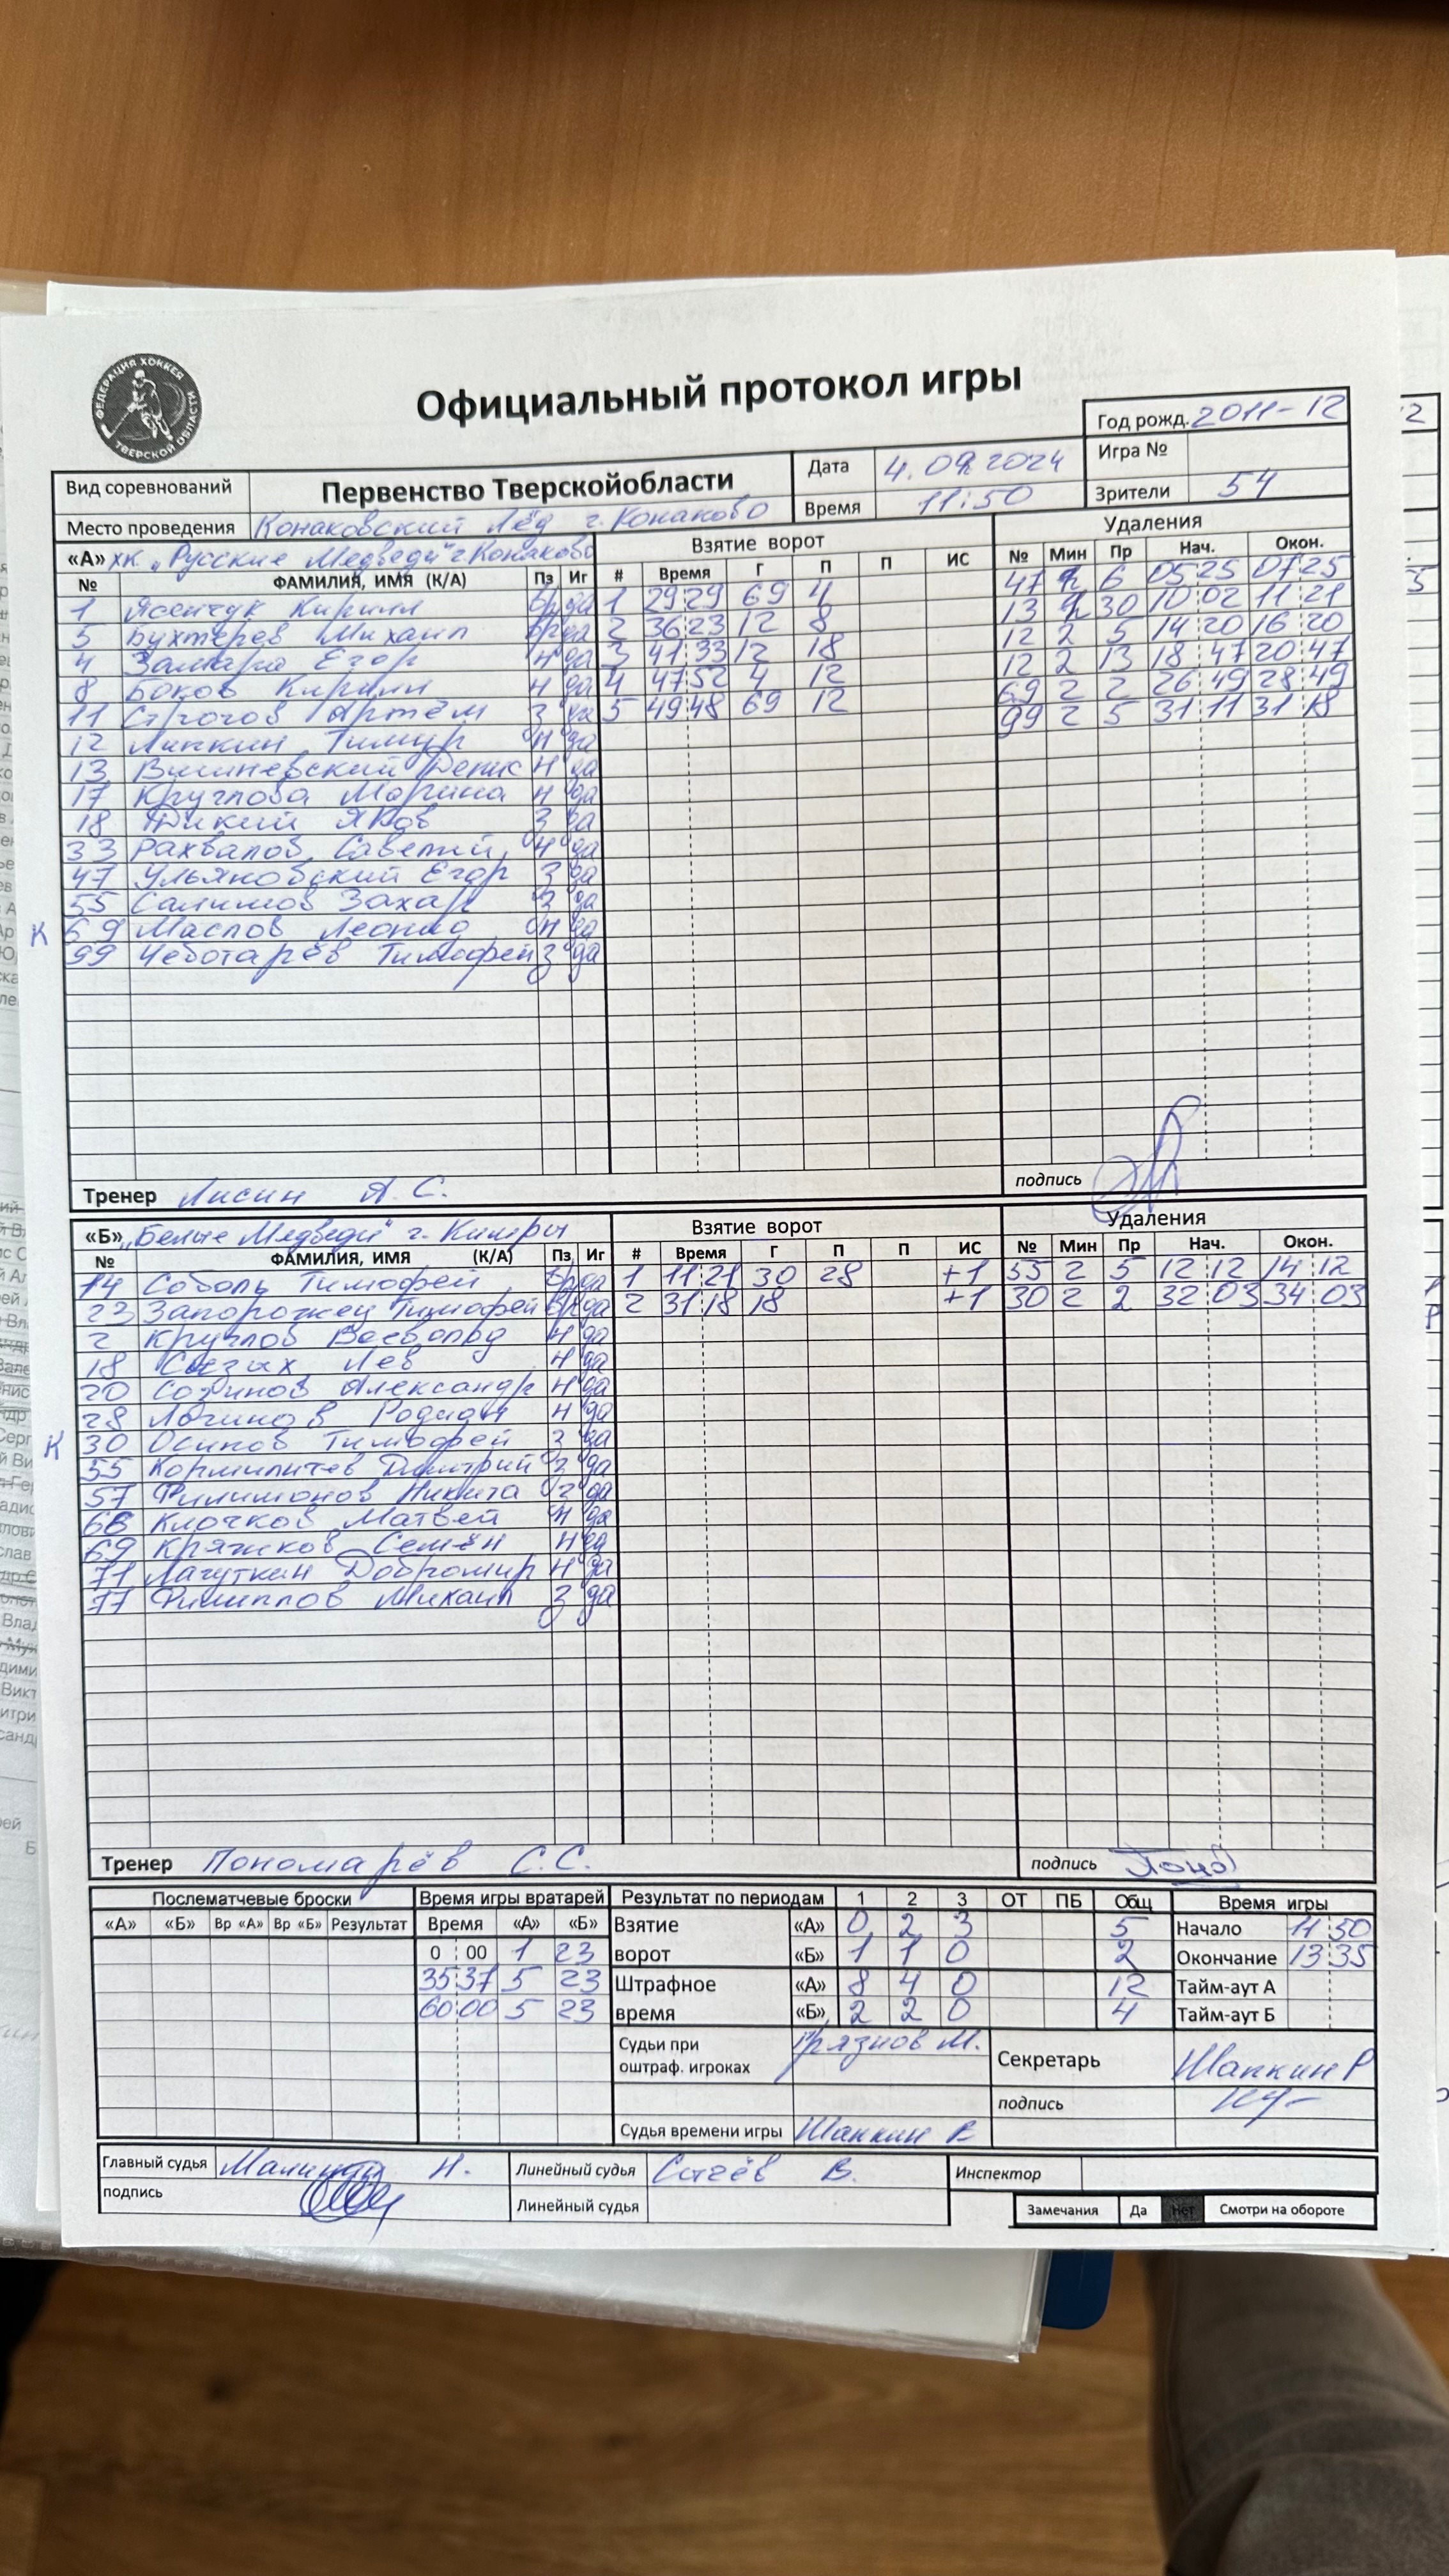 ФЕДЕРАЦИЯ ХОККЕЯ ТВЕРСКОЙ ОБЛАСТИ
Официальный протокол игры
Год рожд. 2011-12
Вид соревнований Первенство Тверскойобласти Дата 4.09.2024 Игра №
Место проведения Конаковский Лёд г. Конаково Время 11:50 Зрители 54
«А» ХК "Русские Медведи" г. Конаково Взятие ворот Удаления
№ ФАМИЛИЯ, ИМЯ (К/А) Пз Иг # Время Г П П ИС № Мин Пр Нач. Окон.
1 Ясенчук Кирилл Вр да 1 29 29 69 4 47 2 6 05 25 07 25
5 Бухтерев Михаил Вр да 2 36 23 12 8 13 2 30 10 02 11 21
4 Егор Н да 3 41 33 12 18 12 2 5 14 20 16 20
8 Боков Кирилл Н да 4 47 52 4 12 12 2 13 18 47 20 47
11 Строгов Артём З да 5 49 48 69 12 69 2 2 26 49 28 49
12 Липкин Тимур Н да 99 2 5 31 11 31 18
13 Вишневский Денис Н да
17 Круглова Марина Н да
18 Дикий Яков З да
33 Рахвалов Савелий Н да
47 Ульяновский Егор З да
55 Салимов Захар З да
К 69 Маслов Леонид Н да
99 Чеботарёв Тимофей З да
Тренер Лисин А.С. подпись
«Б» "Белые Медведи" г. Кимры Взятие ворот Удаления
№ ФАМИЛИЯ, ИМЯ (К/А) Пз Иг # Время Г П П ИС № Мин Пр Нач. Окон.
14 Соболь Тимофей Вр да 1 11 21 30 28 +1 55 2 5 12 12 14 12
23 Запорожец Тимофей Вр да 2 31 18 18 +1 30 2 2 32 03 34 03
2 Круглов Всеволод Н да
18 Лев Н да
20 Созинов Александр Н да
28 Логинов Родион Н да
К 30 Осипов Тимофей З да
55 Кормилитев Дмитрий З да
57 Филимонов Никита да
68 Клочков Матвей Н да
69 Кряжков Семён Н да
71 Лагуткин Добромир Н да
77 Филиппов Михаил З да
Тренер Пономарёв С.С. подпись
Послематчевые броски Время игры вратарей Результат по периодам 1 2 3 ОТ ПБ Общ Время игры
«А» «Б» Вр «А» Вр «Б» Результат Время «А» «Б» Взятие «А» 0 2 3 5 Начало 11 50
0 00 1 23 ворот «Б» 1 1 0 2 Окончание 13 35
35 37 5 23 Штрафное «А» 8 4 0 12 Тайм-аут А
60 00 5 23 время «Б» 2 2 0 4 Тайм-аут Б
Судьи при оштраф. игроках Грязнов М. Секретарь Шапкин Р
подпись
Судья времени игры Шапкин Р
Главный судья Н. Линейный судья В. Инспектор
подпись Линейный судья
Замечания Да Нет Смотри на обороте